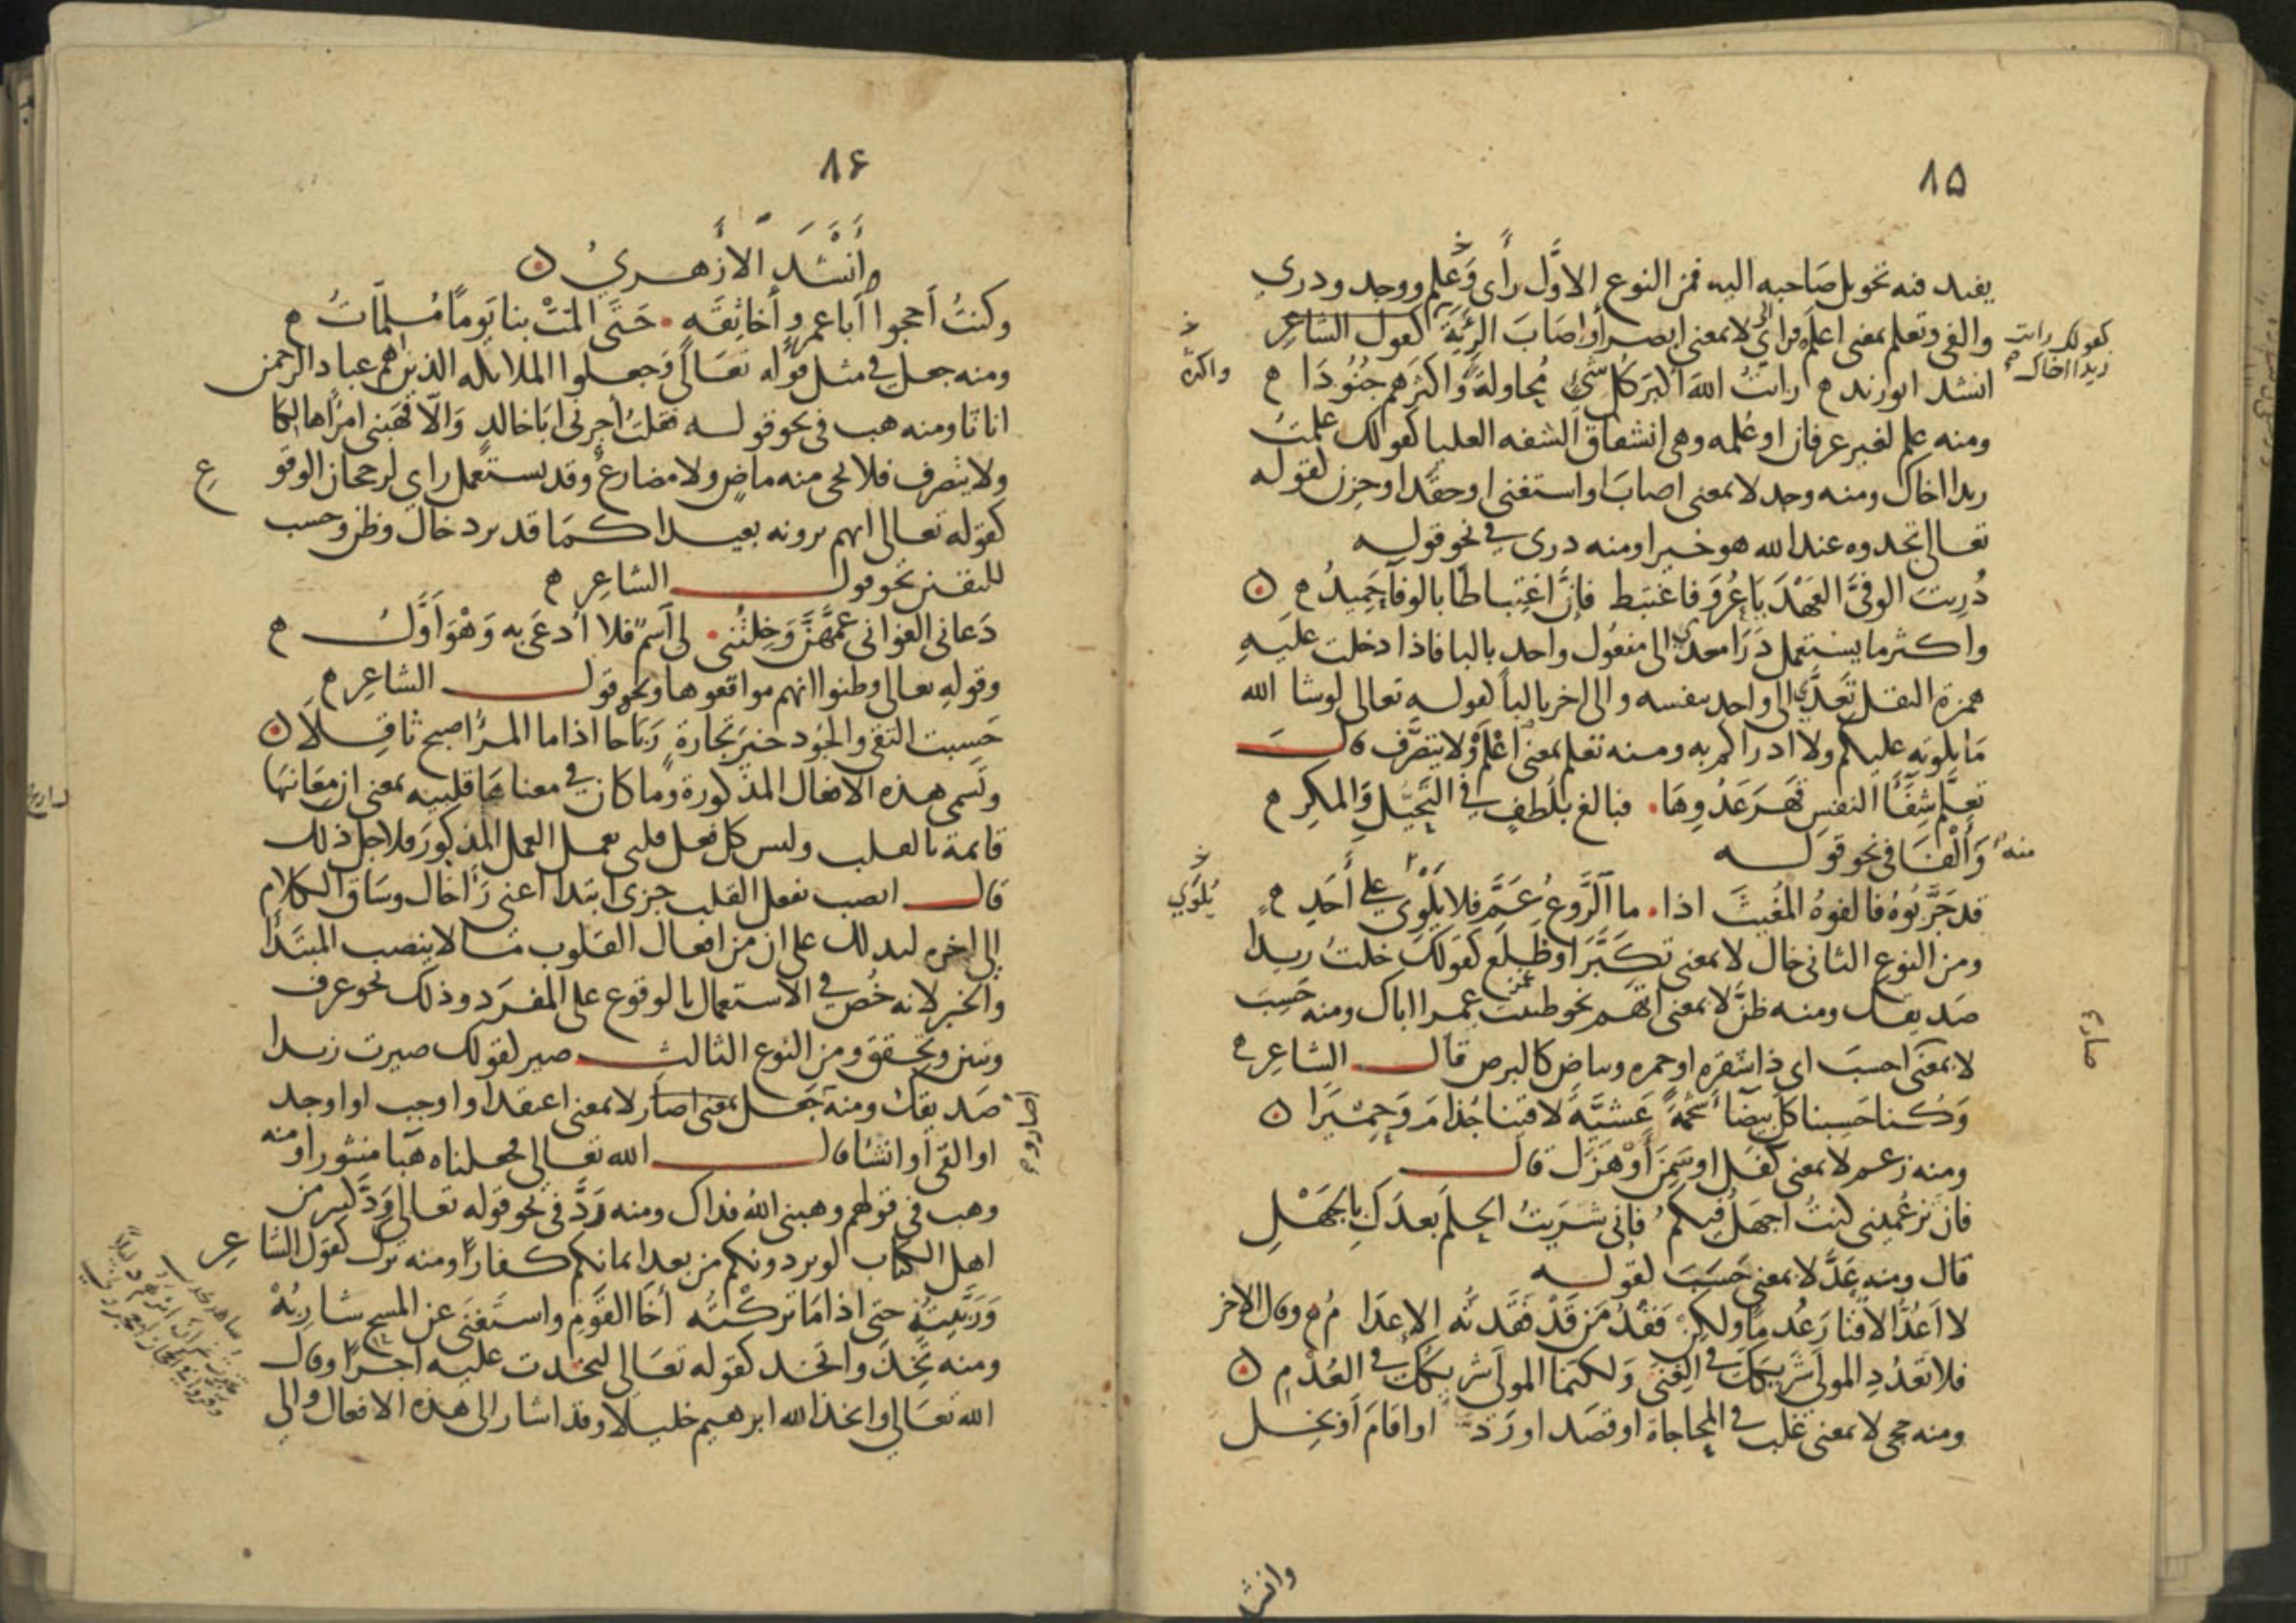 ٨٥
يفيد فيه تحويل صاحبه اليه فمن النوع الاول رأى وعلم ووجد ودرى
والفى وتعلم بمعنى اعلم فرأى لا بمعنى ابصر أو اصاب الرئة كقول الشاعر
كقولك رايت
زيدا اخاك
انشد ابو زيد رايت الله اكبر كل شئ محاولة واكثرهم جنودا
واكثره
ومنه علم لغير عرفان او علمه وهى انشقاق الشفه العليا كقولك علمت
زيدا اخاك ومنه وجد لا بمعنى اصاب او استغنى او حقد او حزن لقوله
تعالى تجدوه عند الله هو خيرا ومنه درى في نحو قوله
دُرِيتَ الوفىَّ العَهْدَ يا عُرْوَ فاغتبط فإنّ اغتباطا بالوفآء حَمِيدُ
واكثر ما يستعمل درا معدى الى مفعول واحد بالبا فاذا دخلت عليه
همزة النقل تعدى الى واحد بنفسه والى اخر بالبا لقوله تعالى لو شا الله
ما تلوته عليكم ولا ادراكم به ومنه تعلم بمعنى اعْلَمْ ولا يتصرف قال
تعلَّم شفآ النفس قهرَ عَدُوِهَا فبالغ بلُطفٍ في التحَيُّلِ والمكرِ
منه وَألْفَا في نحو قوله
قد جَرَّبُوهُ فالفوهُ المُغيثَ اذا ما الرَّوعُ عَمَّ فلا يَلْوى على أحَدِ
يُلوَي
ومن النوع الثانى خال لا بمعنى تكبَّر او ظلع كقولك خلت زيدا
صديقك ومنه ظنَّ لا بمعنى اتهم نحو ظننت عمرا اباك ومنه حَسِبَ
لا بمعنى احسبَ اى ذا شقره او حمره وبياض كالبرص قال الشاعر
وَكُنا حَسِبنا كلَّ بيضآ شحْمَةً عَشيَّةَ لاقينا جُذامَ وَحِمْيَرَا
ومنه زعم لا بمعنى كفل او سَمِنَ أوْ هَزَل قال
فان تزعُمينى كنتُ اجهَلُ فيكم فإنى شَرَيتُ الحِلمَ بعدَكِ بالجهْلِ
قال ومنه عَدَّ لا بمعنى حَسَبَ لقوله
لا أعُدُّ الاقْتارَ عُدمًا ولكن فَقْدُ مَن قَدْ فَقَدتُه الاعدَا مُ وقال الاخر
فلا تَعْدُدِ المولى شريكَكَ في الغِنَى ولكنما المولى شريكُكَ في العُدْمِ
ومنه حجى لا بمعنى غلب في المحاجاة او قصد او رَدَّ او اقامَ أو بخل
وانشد
٨٦
وأنْشَدَ الأزهرىُ
وكنتُ أحجوا أبا عمرٍو أخا ثِقَهٍ حَتَّى المتْ بنا يَومًا مُلمّاتُ
ومنه جعل في مثل قوله تعالى وَجعلوا الملايكه الذين هم عباد الرحمن
اناثا ومنه هب في نحو قوله فقلتُ أجرنى ابا خالدٍ وَالّا فَهَبنى امرًا هالكا
ولا يتصرف فلا يجى منه ماضٍ ولا مضارع وقد يستعمل راي لرجحان الوقو
ع
كقوله تعالى انهم يرونه بعيدا كما قد يرد خال وظن وحسب
لليقين نحو قول الشاعر
دَعانى الغوانى عَمَّهُنَّ وَخِلْتُنى لى اسمٌ فلا أدعَى به وَهْوَ أوَّلُ
وقوله تعالى وظنوا انهم مواقعوها ونحو قول الشاعر
حَسِبت التقى والجُود خيرَ تجارةٍ رَبَاحا اذا ما المرُ اصبح ثاقِلاَ
وتسمى هذه الافعال المذكورة وما كان في معناها قلبيه بمعنى ان معَانيها
قايمة بالقلب وليس كل فعل قلبى يعمل العمل المذكورَ فلاجل ذلك
قال انصب بفعل القلب جزى ابتدا اعنى رَأ اخال وسَاق الكلام
الى اخره ليدلك على ان من افعال القلوب مَا لا ينصب المبتدَأ
والخبر لانه خُص في الاستعمال بالوقوع على المفرَد وذلك نحو عرف
وتبين وتحقق ومن النوع الثالث صير لقولك صيرت زيدا
صَديقك ومنه جعل بمعنى اصار لا بمعنى اعتقد او اوجب او اوجد
او القى أو انشا قال الله تعالى فجعلناه هَبا منثورا ومنه
وهب في قولهم وهبنى اللهُ فداك ومنه رَدَّ في نحو قوله تعالى وَدَّ كثير من
اهل الكتاب لو يردونكم من بعد ايمانكم كفارًا ومنه ترك كقول الشاعر
وَرَبَّيتُهُ حتى اذا مَا تركْتُه أخَا القَومِ واستَغنَى عن المسح شارِبُهْ
ومنه تَخِذَ واتخذ كقوله تعَالى لتخذت عليه اجرًا وقال
الله تعَالى واتخذ الله ابرهيم خليلا وقد اشار الى هذه الافعال والى